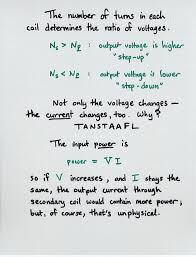 The number of turns in each
coil determines the ratio of voltages.
N₁ > N₂ : output voltage is higher
"step-up"
N₁ < N₂ : output voltage is lower
"step-down"
Not only the voltage changes —
the current changes, too. Why?
TANSTAAFL
The input power is
power = V I
so if V increases, and I stays the
same, the output current through
secondary coil would contain more power;
but, of course, that's unphysical.